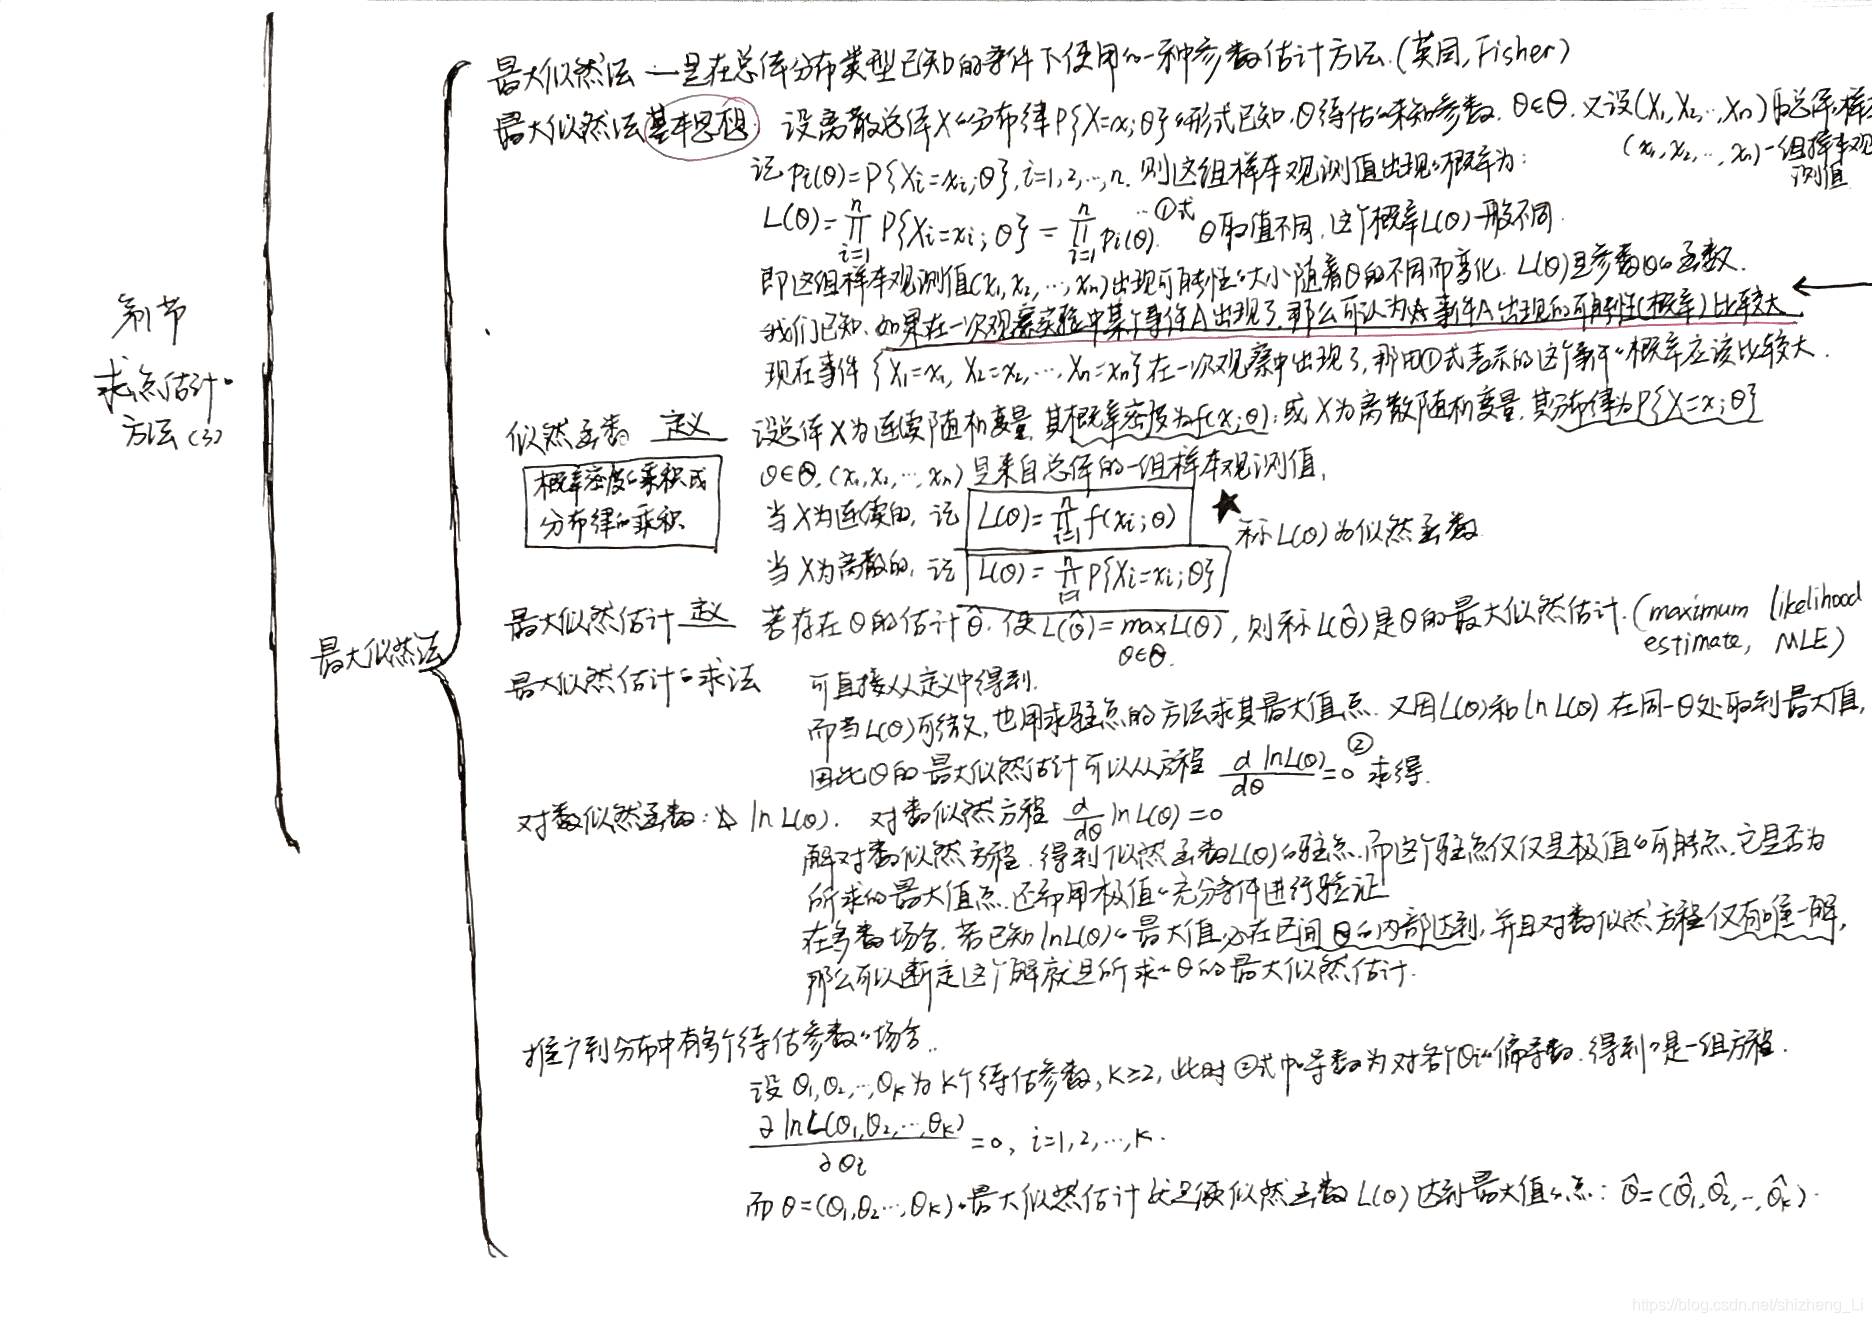 第1节
求点估计的
方法(3)
最大似然法
最大似然法 — 是在总体分布类型已知的条件下使用的一种参数估计方法.(英国, Fisher)
最大似然法基本思想 设离散总体X的分布律P{X=x;θ}的形式已知,θ待估的未知参数, θ∈Θ. 又设(X1,X2,…,Xn)取总体样本
(x1,x2,…,xn)一组样本观
测值
记 pi(θ)=P{Xi=xi;θ}, i=1,2,…,n. 则这组样本观测值出现的概率为:
L(θ)=∏_{i=1}^{n} P{Xi=xi;θ} = ∏_{i=1}^{n} pi(θ). …①式 θ取值不同,这个概率L(θ)一般不同.
即这组样本观测值(x1,x2,…,xn)出现可能性的大小随着θ的不同而变化. L(θ)是参数θ的函数.
我们已知,如果在一次观察实验中某个事件A出现了,那么可认为 事件A出现的可能性(概率)比较大
现在事件{X1=x1, X2=x2, …, Xn=xn}在一次观察中出现了,那由①式表示的这个事件的概率应该比较大.
似然函数 定义 设总体X为连续随机变量,其概率密度为f(x;θ);或X为离散随机变量,其分布律为P{X=x;θ}
概率密度的乘积或
分布律的乘积
θ∈Θ, (x1,x2,…,xn)是来自总体的一组样本观测值,
当X为连续的, 记 L(θ)=∏_{i=1}^{n} f(xi;θ) ★
称L(θ)为似然函数
当X为离散的, 记 L(θ)=∏_{i=1}^{n} P{Xi=xi;θ}
最大似然估计 定义 若存在θ的估计θ̂, 使L(θ̂)=max_{θ∈Θ} L(θ), 则称L(θ̂)是θ的最大似然估计.(maximum likelihood
estimate, MLE)
最大似然估计的求法 可直接从定义中得到.
而当L(θ)可微, 也用求驻点的方法求其最大值点. 又因L(θ)和lnL(θ)在同一θ处取到最大值,
因此θ的最大似然估计可以从方程 d lnL(θ)/dθ=0 ② 求得.
对数似然函数: lnL(θ). 对数似然方程 d/dθ lnL(θ)=0
解对数似然方程,得到似然函数L(θ)的驻点.而这个驻点仅仅是极值的可能点,它是否为
所求的最大值点,还需用极值的充分条件进行验证
在多数场合,若已知lnL(θ)的最大值必在区间Θ的内部达到,并且对数似然方程仅有唯一解,
那么可以断定这个解就是所求的θ的最大似然估计.
推广到分布中有多个待估参数的场合.
设θ1,θ2,…,θk为k个待估参数, k≥2, 此时②式中导数为对各个θi的偏导数.得到的是一组方程.
∂lnL(θ1,θ2,…,θk)/∂θi =0, i=1,2,…,k.
而θ=(θ1,θ2…,θk)的最大似然估计 是使似然函数L(θ)达到最大值的点: θ̂=(θ̂1,θ̂2,…,θ̂k).
https://blog.csdn.net/shizheng_Li